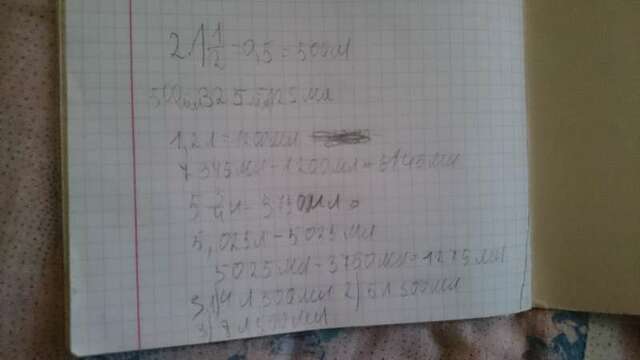 2) 1 1/2 = 0,5 = 500 мл
325
1,2л = 1200мл
7345мл - 1200мл = 6145мл
5 3/4л = 3750мл
5,025л = 5025мл
5025мл - 3750мл = 1275мл
3) 1) 4л 500мл 2) 5л 500мл
3) 7л 500мл